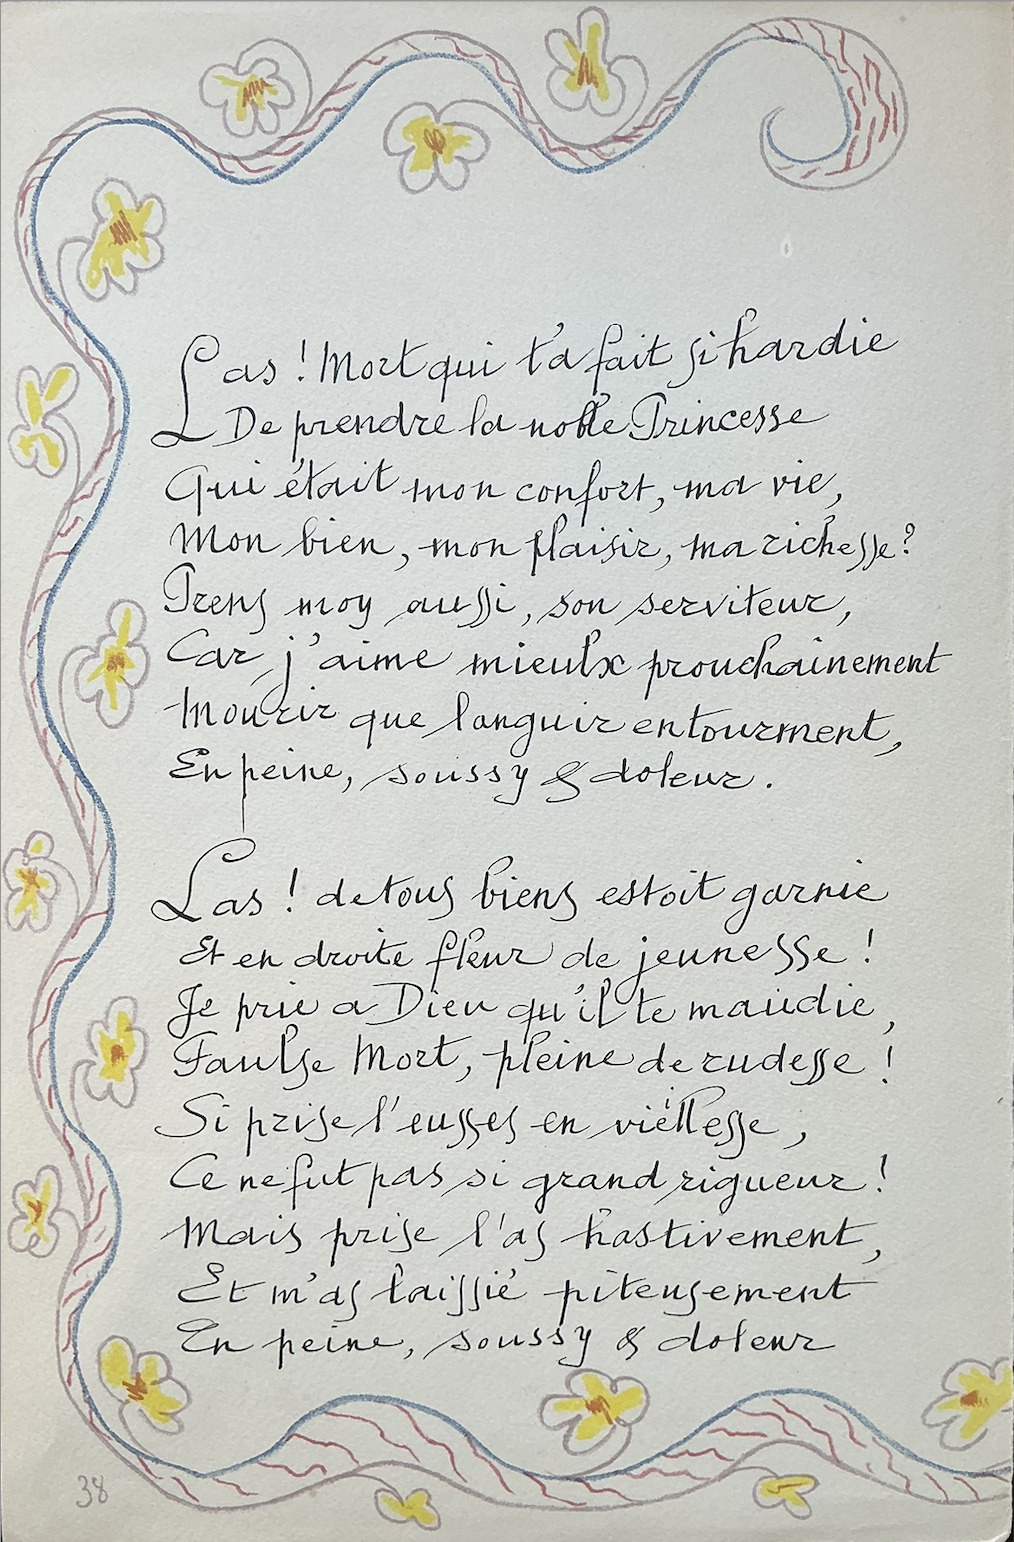 Las ! Mort qui t'a fait si hardie
De prendre la noble Princesse
Qui était mon confort, ma vie,
Mon bien, mon plaisir, ma richesse ?
Prens moy aussi, son serviteur,
Car j'aime mieulx prouchainement
Mourir que languir en tourment,
En peine, soussy & doleur.
Las ! de tous biens estoit garnie
Et en droite fleur de jeunesse !
Je prie a Dieu qu'il te maudie,
Faulse Mort, pleine de rudesse !
Si prise l'eusses en vieillesse,
Ce ne fut pas si grand rigueur !
Mais prise l'as hastivement,
Et m'as laissié piteusement
En peine, soussy & doleur
38